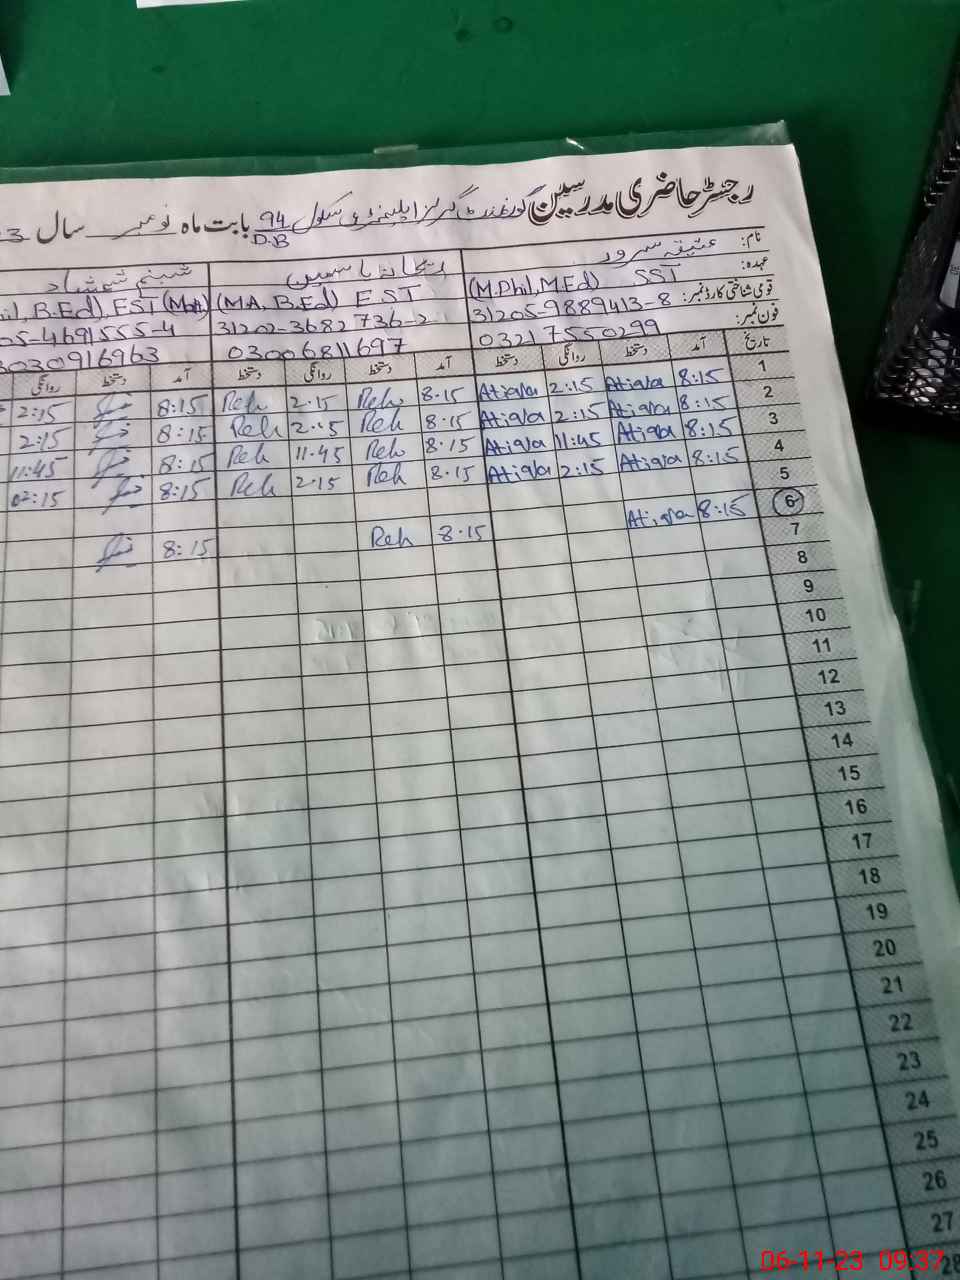 رجسٹر حاضری مدرسین گورنمنٹ گرلز ایلیمنٹری سکول 94 D.B بابت ماہ نومبر سال
نام: عتیقہ سرور ریحانہ یاسمین شبنم شمشاد
عہدہ: (M.Phil, M.Ed) SST (M.A, B.Ed) EST B.Ed) EST (Math)
قومی شناختی کارڈ نمبر: 31205-9889413-8 31202-3682736-2 05-4691555-4
فون نمبر: 03217550299 03006811697 3030916963
تاریخ آمد دستخط روانگی دستخط آمد دستخط روانگی دستخط آمد دستخط روانگی
1 8:15 Atiqa 2:15 Atiqa 8.15 Reh 2.15 Reh 8:15 2:15
2 8:15 Atiqa 2:15 Atiqa 8.15 Reh 2.15 Reh 8:15 2:15
3 8:15 Atiqa 11:45 Atiqa 8.15 Reh 11.45 Reh 8:15 11:45
4 8:15 Atiqa 2:15 Atiqa 8.15 Reh 2.15 Reh 8:15 02:15
5
6 8:15 Atiqa 8.15 Reh 8:15
7
8
9
10
11
12
13
14
15
16
17
18
19
20
21
22
23
24
25
26
27
28
06-11-23 09:37